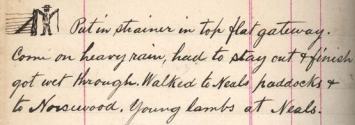 Put in strainer in top flat gateway.
Come on heavy rain, had to stay out & finish
got wet through. Walked to Neals paddocks &
to Norsewood. Young lambs at Neals.